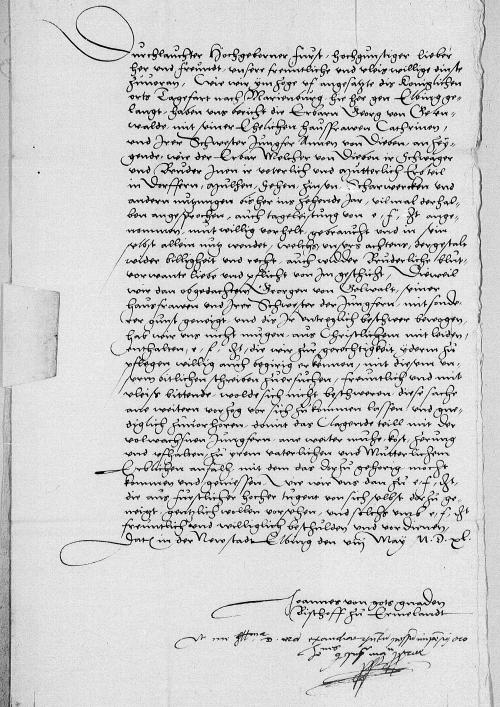 Durchlauchter Hochgeborner Furst, hochgunstiger lieber
her vnd freundt, vnsere freuntliche vnd vleis willige dinste
zuuoran, Wie wir ym hoge vf angesatzte die Koniglichen
orts Tagefart nach Marienburg hie her gen Elbing ge-
langt, haben vns bericht die Erbarn Georg von
walde, mit seiner Ehelichen haussfrawen Catherinen,
vnd Irer Schwester Jungfer Annen von Dieben, an hey-
gende, wie der Erbar Melcher von Dieben ir Schwager
vnd Bruder Inen ir veterlich vnd mutterlich Erbteil
in Derffern, Mulhen, hehen, Scharwercken vnd
andern nutzungen bisher ins zehende Jar, vilmal derhal-
ben angesprochen, auch tageleistung von e, f, Ht ange-
nommen, mit willig vorhelt, gebraucht vnd in sein
selbst allein nutz wendet, welchs vnsers achtens, dergestalt
wider billigheit vnd recht, auch widder Bruderliche blut-
vorwante liebe vnd pflicht von Im geschicht, Dieweil
wir dan obgedachten Georgen von, seiner
hausfrawen vnd Irer Schwester der Jungfern, mit sunde-
rer gunst geneigt vnd die Ir vntreglich beschwer bewogen,
hab wir vns nicht mugen, aus Christlichem mitleiden,
enthalten, e, f, Ht, die wir zur gerechtigkeit yderm zu
pflegen willig auch begirig erkennen, mit diesem vn-
serm bitlichen schreiben zuersuchen, freuntlich vnd mit
vleise bittende, wolde sich nicht beschweren, diese sache
ane weitern vorzog vor sich zukommen lassen, vnd gne-
diglich zuuorhoren, domit das Clagende teill mit der
volwachsnen Jungfern, ane weiter muhe, kost, zerung
vnd vfhalten, zu yrem vaterlichen vnd Mutterlichem
Erblichen anfalh, mit dem das darzu gehorig mocht
kummen vnd geniessen, Wie wir vns dan zu e, f, Ht,
die aus furstlicher hocher tugent von sich selbst darzu ge-
neigt, gentzlich wollen vorsehen, vnd solchs vmb e, f, Ht
freuntlich vnd williglich beschulden vnd vordinen,
Dat in der Newstadt Elbing den viij May M.D.xl.
Joannes von gots gnaden
Bischoff zu Ermelandt